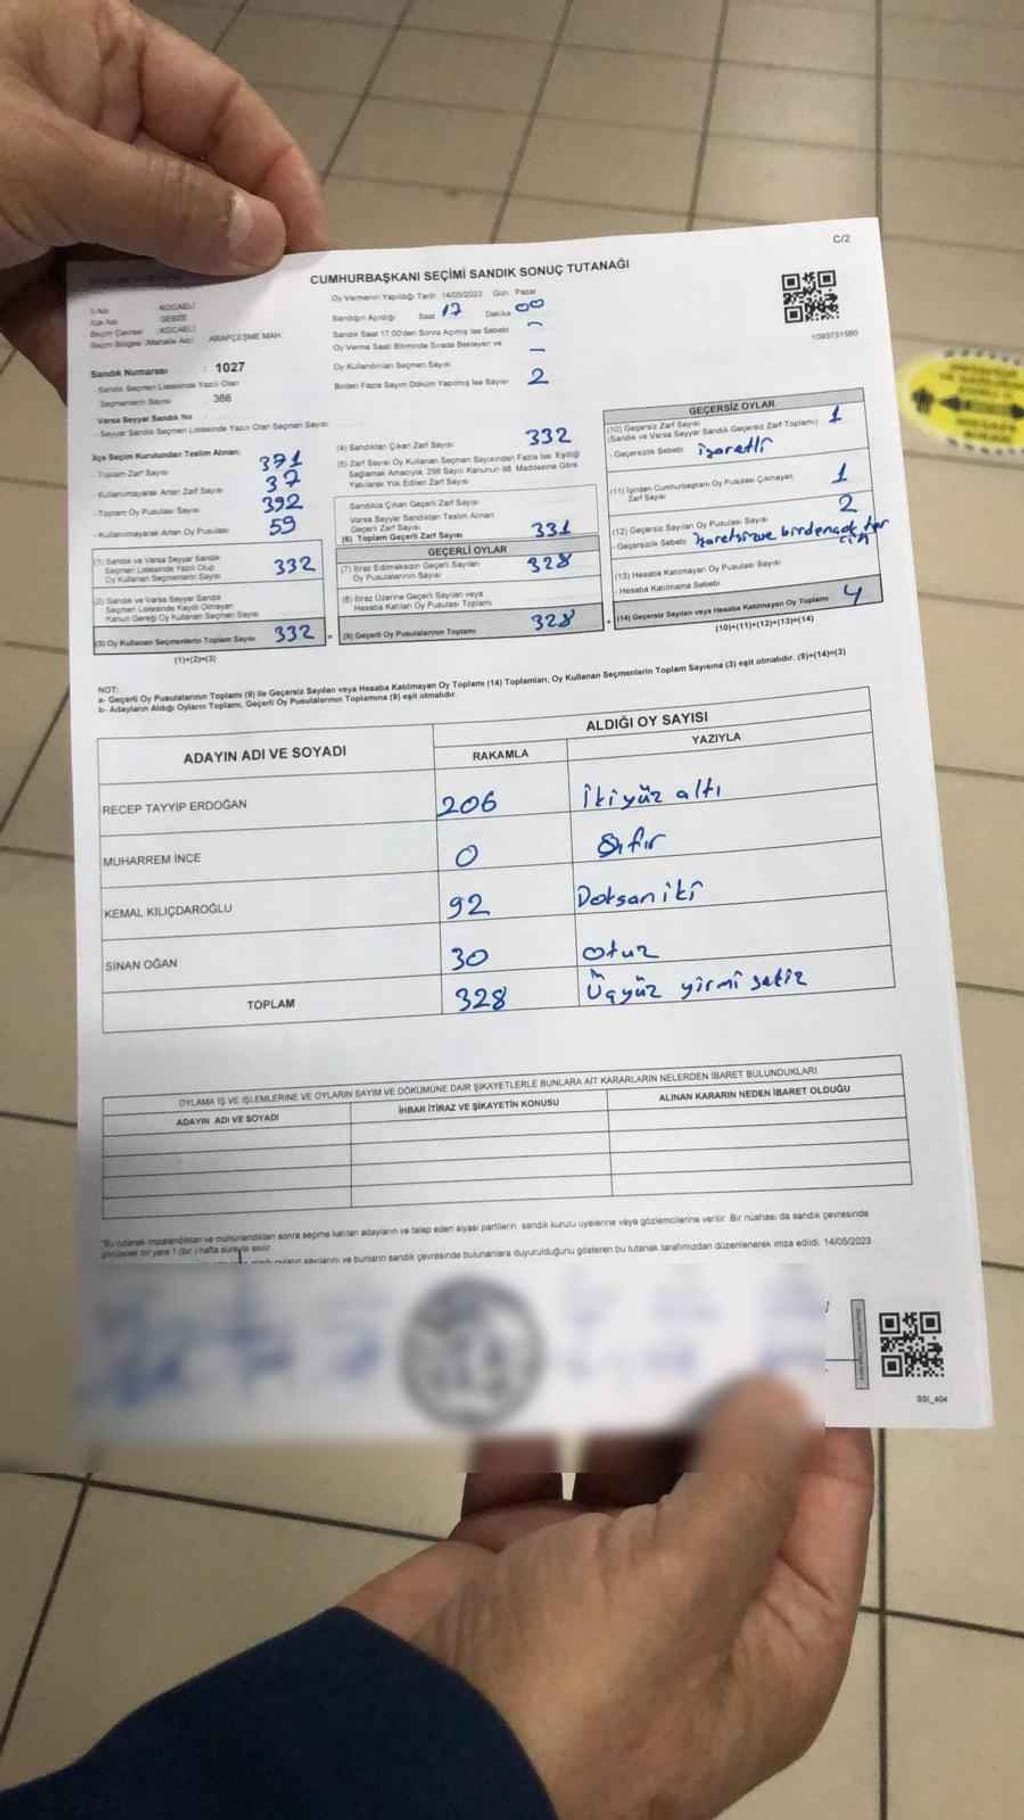 C/2
CUMHURBAŞKANI SEÇİMİ SANDIK SONUÇ TUTANAĞI
İl Adı KOCAELİ
İlçe Adı GEBZE
Seçim Çevresi (KOCAELİ)
Seçim Bölgesi (Mahalle Adı) ARAPÇEŞME MAH.
Sandık Numarası : 1027
- Sandık Seçmen Listesinde Yazılı Olan
Seçmenlerin Sayısı 366
Varsa Seyyar Sandık No
- Seyyar Sandık Seçmen Listesinde Yazılı Olan Seçmen Sayısı
Oy Vermenin Yapıldığı Tarih 14/05/2023 Gün Pazar
Sandığın Açıldığı Saat 17 Dakika 00
Sandık Saat 17.00'den Sonra Açılmış İse Sebebi –
Oy Verme Saati Bitiminde Sırada Bekleyen ve
Oy Kullandırılan Seçmen Sayısı –
Birden Fazla Sayım Döküm Yapılmış İse Sayısı 2
1093731580
İlçe Seçim Kurulundan Teslim Alınan:
Toplam Zarf Sayısı 371
- Kullanılmayarak Artan Zarf Sayısı 37
- Toplam Oy Pusulası Sayısı 392
- Kullanılmayarak Artan Oy Pusulası 59
(1) Sandık ve Varsa Seyyar Sandık
Seçmen Listesinde Yazılı Olup
Oy Kullanan Seçmenlerin Sayısı 332
(2) Sandık ve Varsa Seyyar Sandık
Seçmen Listesinde Kayıtlı Olmayan
Kanun Gereği Oy Kullanan Seçmen Sayısı
(3) Oy Kullanan Seçmenlerin Toplam Sayısı 332 =
(1)+(2)=(3)
(4) Sandıktan Çıkan Zarf Sayısı 332
(5) Zarf Sayısı Oy Kullanan Seçmen Sayısından Fazla İse, Eşitliği
Sağlamak Amacıyla, 298 Sayılı Kanunun 98. Maddesine Göre
Yakılarak Yok Edilen Zarf Sayısı
Sandıkta Çıkan Geçerli Zarf Sayısı
Varsa Seyyar Sandıktan Teslim Alınan
Geçerli Zarf Sayısı
(6) Toplam Geçerli Zarf Sayısı 331
GEÇERLİ OYLAR
(7) İtiraz Edilmeksizin Geçerli Sayılan
Oy Pusulalarının Sayısı 328
(8) İtiraz Üzerine Geçerli Sayılan veya
Hesaba Katılan Oy Pusulası Toplamı
(9) Geçerli Oy Pusulalarının Toplamı 328 +
GEÇERSİZ OYLAR
(10) Geçersiz Zarf Sayısı
(Sandık ve Varsa Seyyar Sandık Geçersiz Zarf Toplamı) 1
- Geçersizlik Sebebi işaretli
(11) İçinden Cumhurbaşkanı Oy Pusulası Çıkmayan
Zarf Sayısı 1
(12) Geçersiz Sayılan Oy Pusulası Sayısı 2
- Geçersizlik Sebebi işaretsiz ve birden çok
(13) Hesaba Katılmayan Oy Pusulası Sayısı
- Hesaba Katılmama Sebebi
(14) Geçersiz Sayılan veya Hesaba Katılmayan Oy Toplamı 4
(10)+(11)+(12)+(13)=(14)
NOT:
a- Geçerli Oy Pusulalarının Toplamı (9) ile Geçersiz Sayılan veya Hesaba Katılmayan Oy Toplamı (14) Toplamları, Oy Kullanan Seçmenlerin Toplam Sayısına (3) eşit olmalıdır. (9)+(14)=(3)
b- Adayların Aldığı Oyların Toplamı, Geçerli Oy Pusulalarının Toplamına (9) eşit olmalıdır.
ADAYIN ADI VE SOYADI
ALDIĞI OY SAYISI
RAKAMLA YAZIYLA
RECEP TAYYİP ERDOĞAN 206 İkiyüz altı
MUHARREM İNCE 0 Sıfır
KEMAL KILIÇDAROĞLU 92 Doksan iki
SİNAN OĞAN 30 otuz
TOPLAM 328 Üçyüz yirmi sekiz
OYLAMA İŞ VE İŞLEMLERİNE VE OYLARIN SAYIM VE DÖKÜMÜNE DAİR ŞİKAYETLERLE BUNLARA AİT KARARLARIN NELERDEN İBARET BULUNDUKLARI
ADAYIN ADI VE SOYADI İHBAR İTİRAZ VE ŞİKAYETİN KONUSU ALINAN KARARIN NEDEN İBARET OLDUĞU
sonra seçime katılan adayların ve talep eden siyasi partilerin sandık kurulu üyelerine veya gözlemcilerine verilir. Bir nüshası da sandık çevresinde
görülebilen bir yere 1 (bir) hafta süreyle asılır.
ve bunların sandık çevresinde bulunanlara duyurulduğunu gösteren bu tutanak tarafımızdan düzenlenerek imza edildi. 14/05/2023